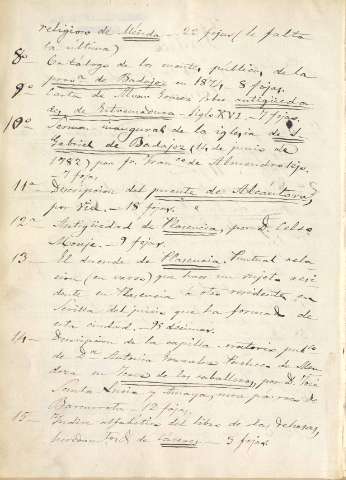 religioso de Mérida - 22 fojas (le falta
la última)
8º Catálogo de los montes públicos de la
provª de Badajoz en 1874 - 8 fojas.
9º Carta de Alvar Gomez sobre antigueda
des de Extremadura - Siglo XVI - 7 fojas.
10º Sermon inaugural de la iglesia de S.
Gabriel de Badajoz (14 de junio de
1782) por fr. Franco de Almendralejo.
- 7 fojas.
11ª Descripcion del puente de Alcántara,
por - 18 fojas.
12ª Antigüedad de Plasencia, por D. Celso
Monje. - 9 fojas.
13 - El duende de Plasencia. Puntual rela-
cion (en verso) que hace un sujeto resi-
dente en Plasencia á otro residente en
Sevilla del juicio que ha formado de
esta ciudad. - decimas.
14 - Descripcion de la capilla oratorio pubco
de Dª Antonia Gonzalez Pacheco de Men
doza en Jerez de los caballeros, por D. José
Santa Lucia y Amaya, cura párroco de
Barcarrota - 12 fojas.
15 - Indice alfabético del libro de las dehesas,
de Cáceres - 3 fojas.